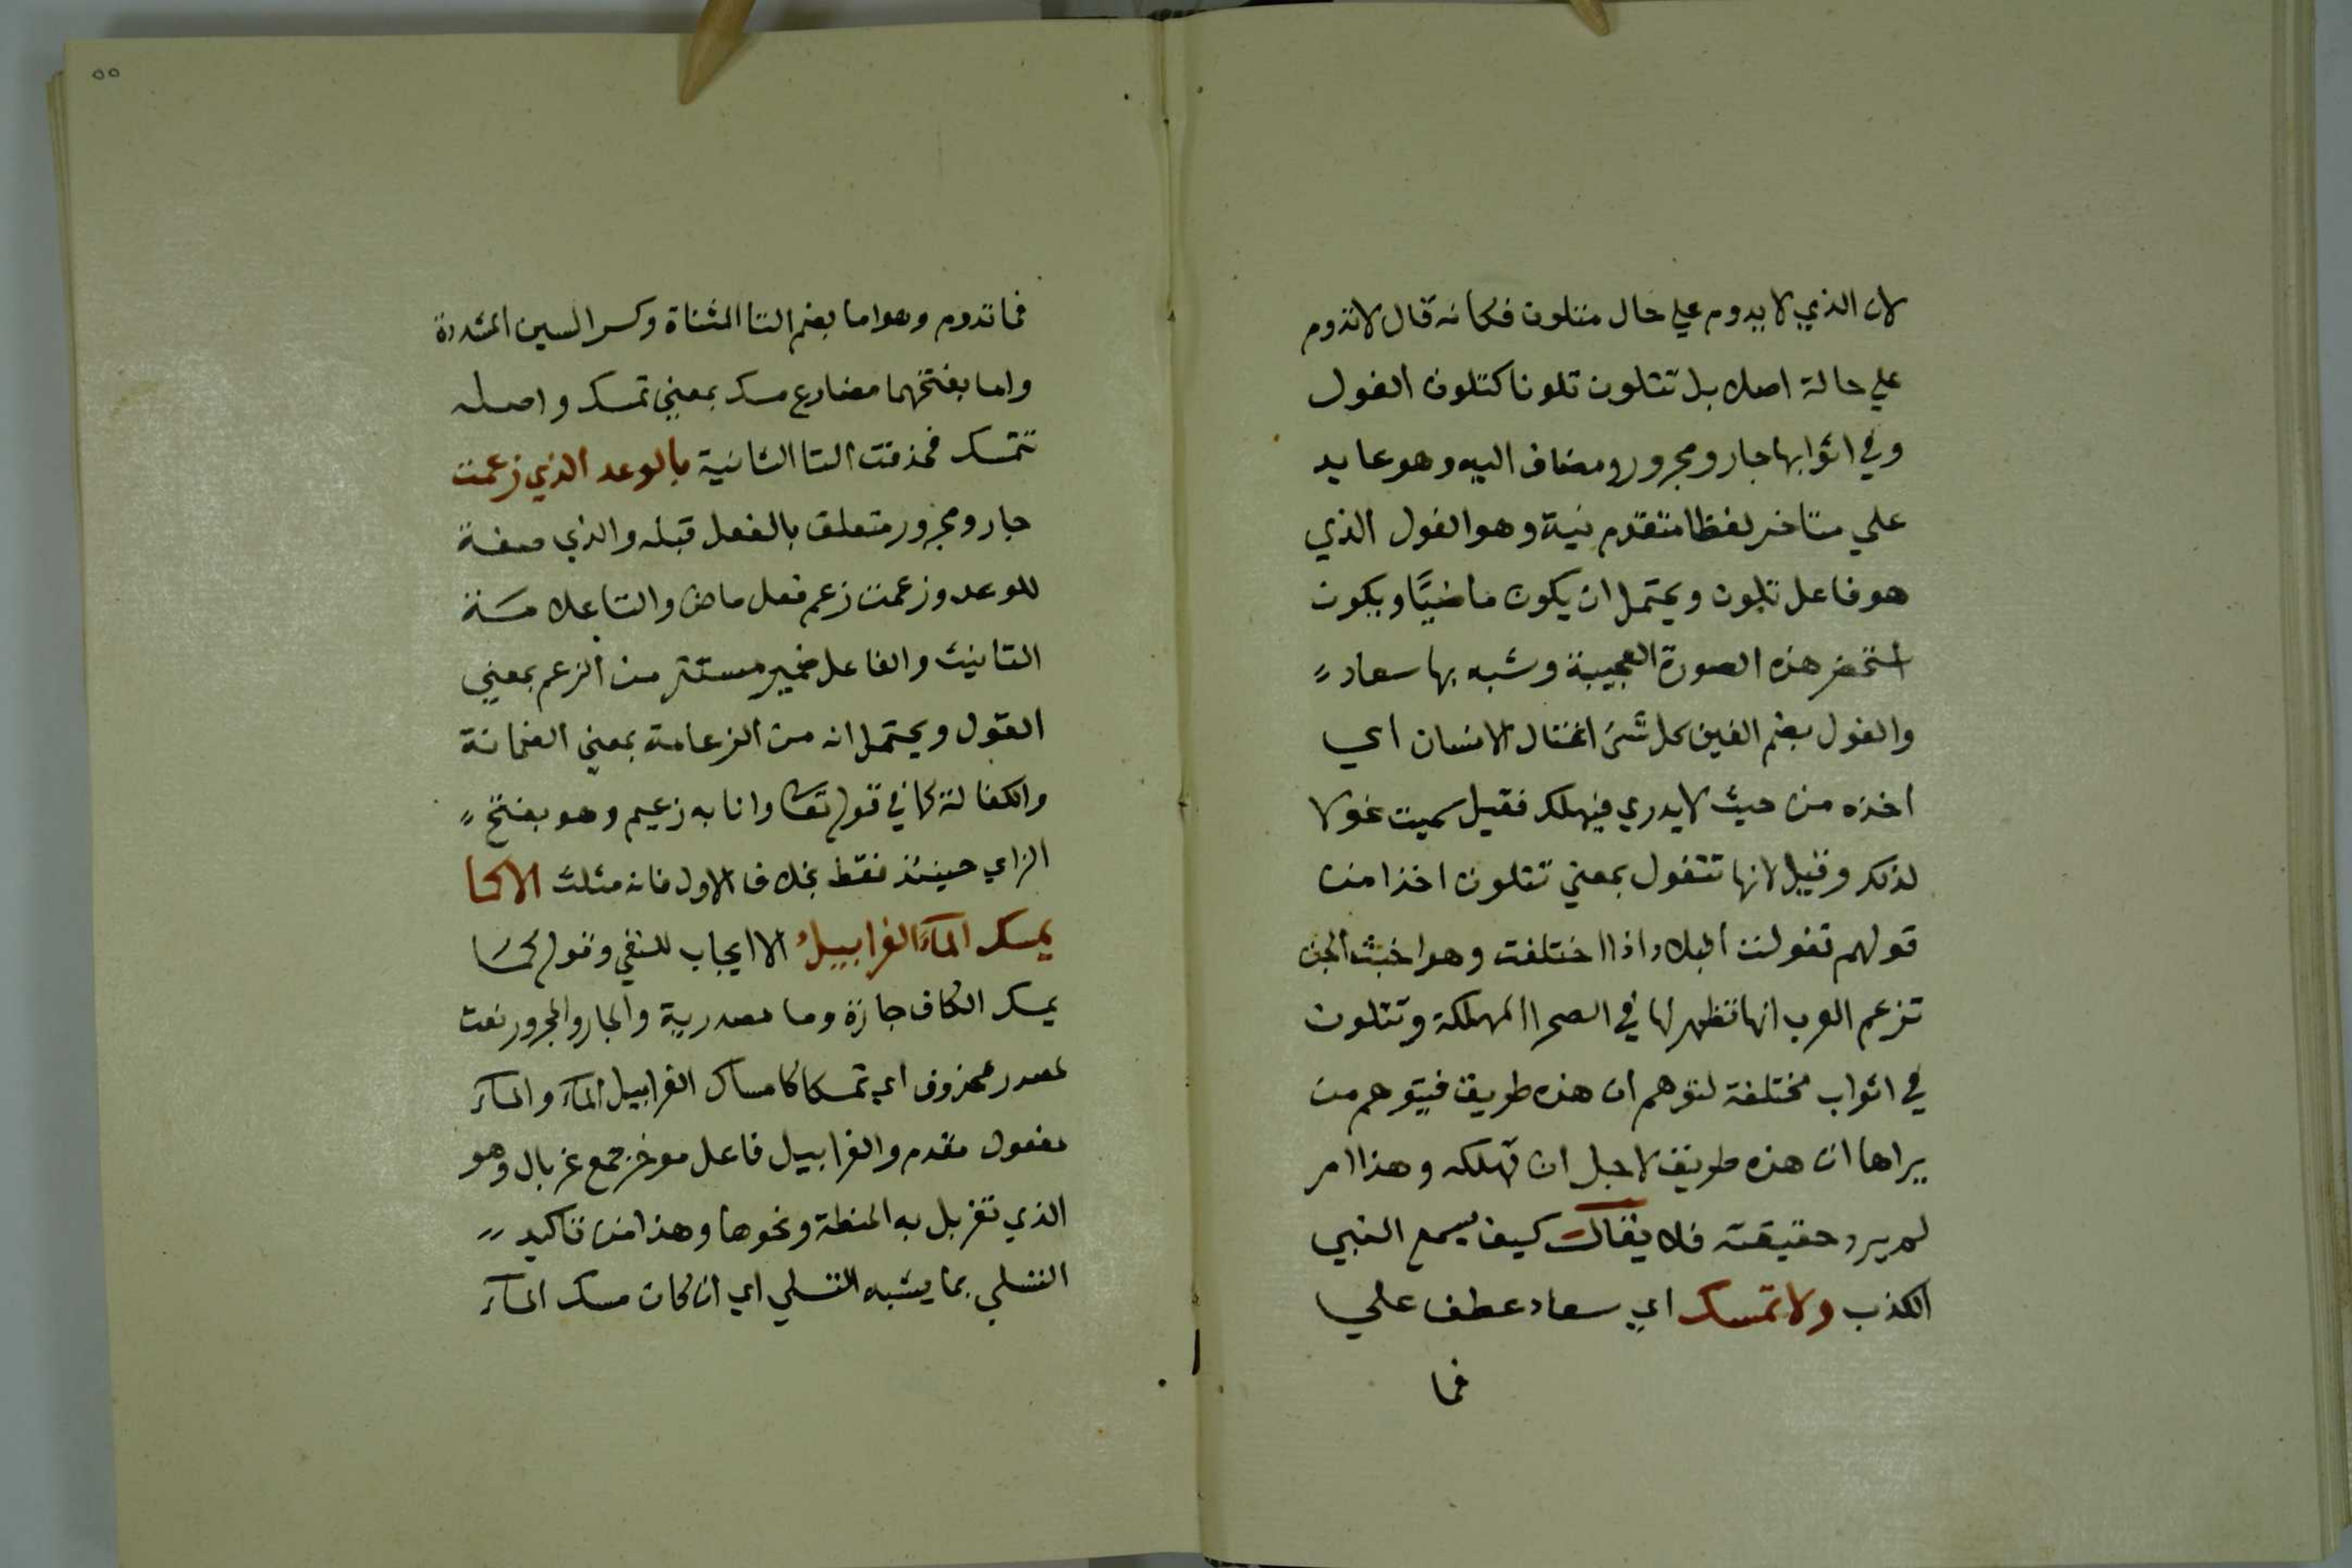 لان الذي لا يدوم علي حال متلون فكانه قال لا تدوم
علي حالة اصلا بل تتلون تلونا كتلون الغول
وفي اثوابها جار ومجرور ومضاف اليه وهو عايد
علي متاخر لفظا متقدم نية وهو الغول الذي
هو فاعل تلون ويحتمل ان يكون ماضيا ويكون
استحضر هذه الصورة العجيبة وشبه بها سعاد
والغول بضم الغين كل شئ اغتال الانسان اي
اخذه من حيث لا يدري فيهلك فقيل سميت غولا
لذلك وقيل لانها تتغول بمعني تتلون اخذا من
قولهم تغولت البلاد اذا اختلفت وهو اخبث الجن
تزعم العرب انها تظهر لها في الصحرا المهلكة وتتلون
في اثواب مختلفة لتوهم ان هذه طريق فيتوهم من
يراها ان هذه طريق لاجل ان تهلكه وهذا امر
لم يرد حقيقته فلا يقال كيف يسمع النبي
الكذب ولا تمسك اي سعاد عطف علي
فما
٥٥
فما تدوم وهو اما بضم التا المثناة وكسر السين المشددة
واما بفتحهما مضارع مسك بمعني تمسك واصله
تتمسك فحذفت التا الثانية بالوعد الذي زعمت
جار ومجرور متعلق بالفعل قبله والذي صفة
للوعد وزعمت زعم فعل ماض والتا علامة
التانيث والفاعل ضمير مستتر من الزعم بمعني
القول ويحتمل انه من الزعامة بمعني الضمانة
والكفالة كما في قوله تعا وانا به زعيم وهو بفتح
الزاي حينئذ فقط بخلاف الاول فانه مثلث الا كما
يمسك المآء الغرابيل الا ايجاب للنفي وقوله كما
يمسك الكاف جارة وما مصدرية والجار والمجرور نعت
لمصدر محذوف اي تمسكا كامساك الغرابيل المآء والمآء
مفعول مقدم والغرابيل فاعل موخر جمع غربال وهو
الذي تغربل به الحنطة ونحوها وهذا من تاكيد
النفي بما يشبه النفي اي ان كان مسك المآء